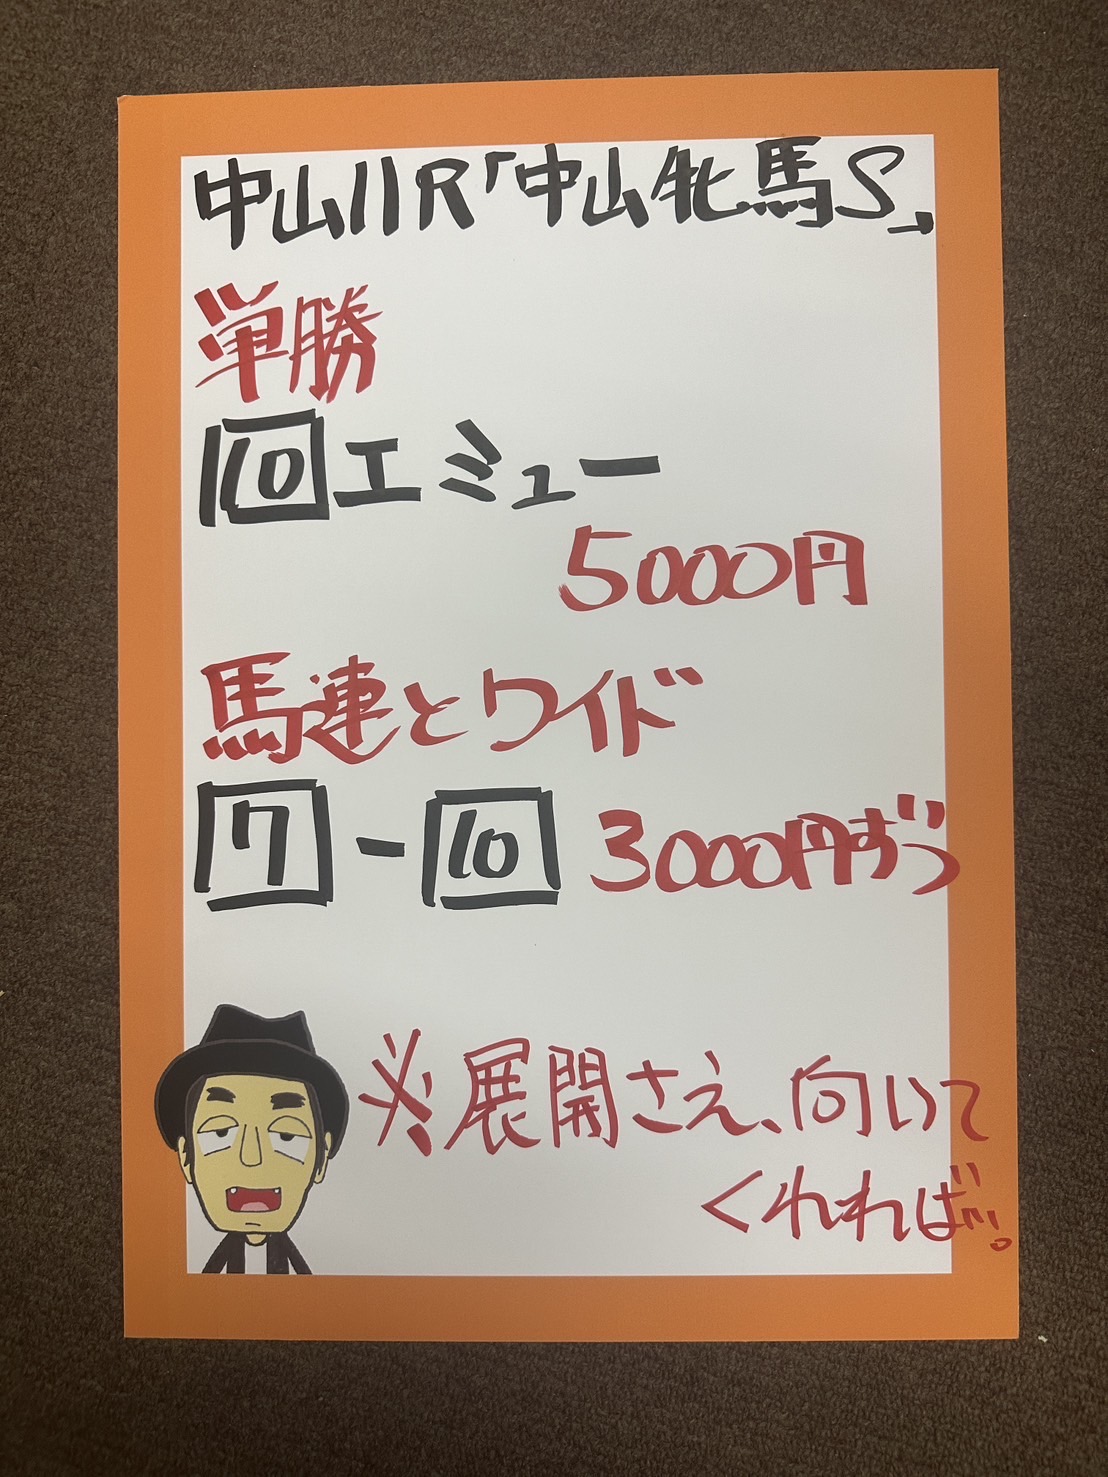 中山11R「中山牝馬S」
単勝
10エミュー
5000円
馬連とワイド
7-10 3000円ずつ
※展開さえ、向いて
くれれば…。